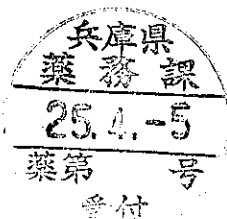 兵庫県
薬務課
25.4.-5
薬第 号
受付